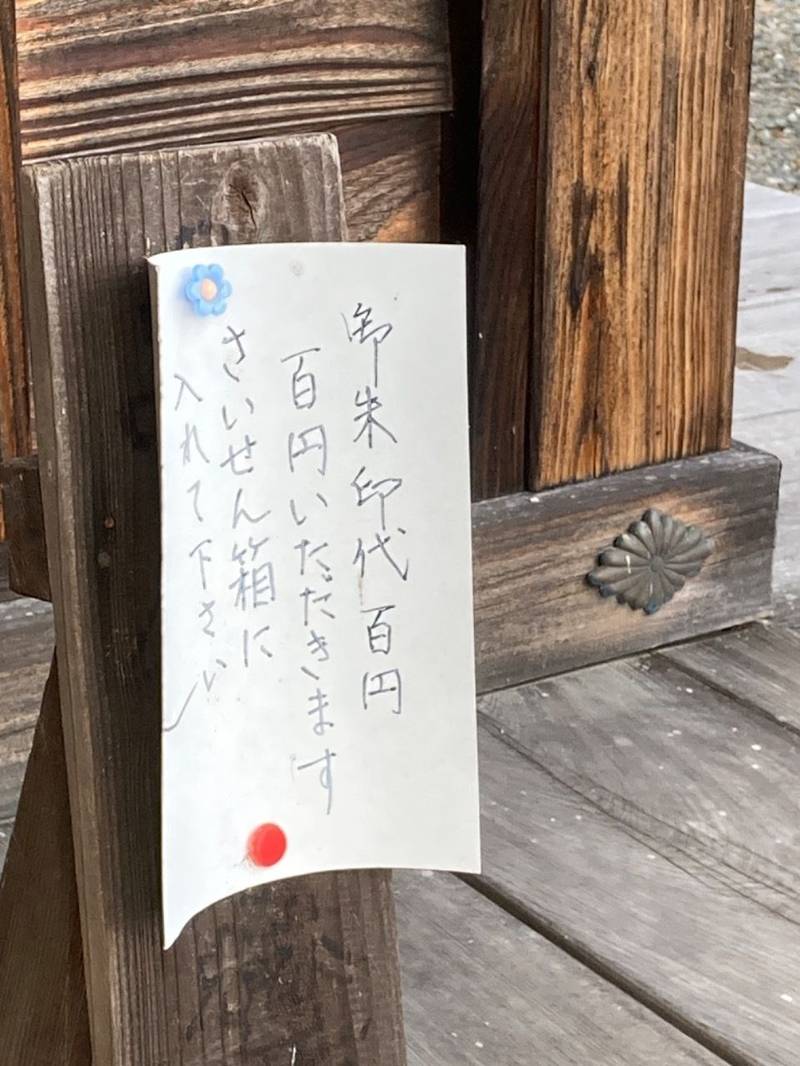 御朱印代百円
百円いただきます
さいせん箱に
入れて下さい